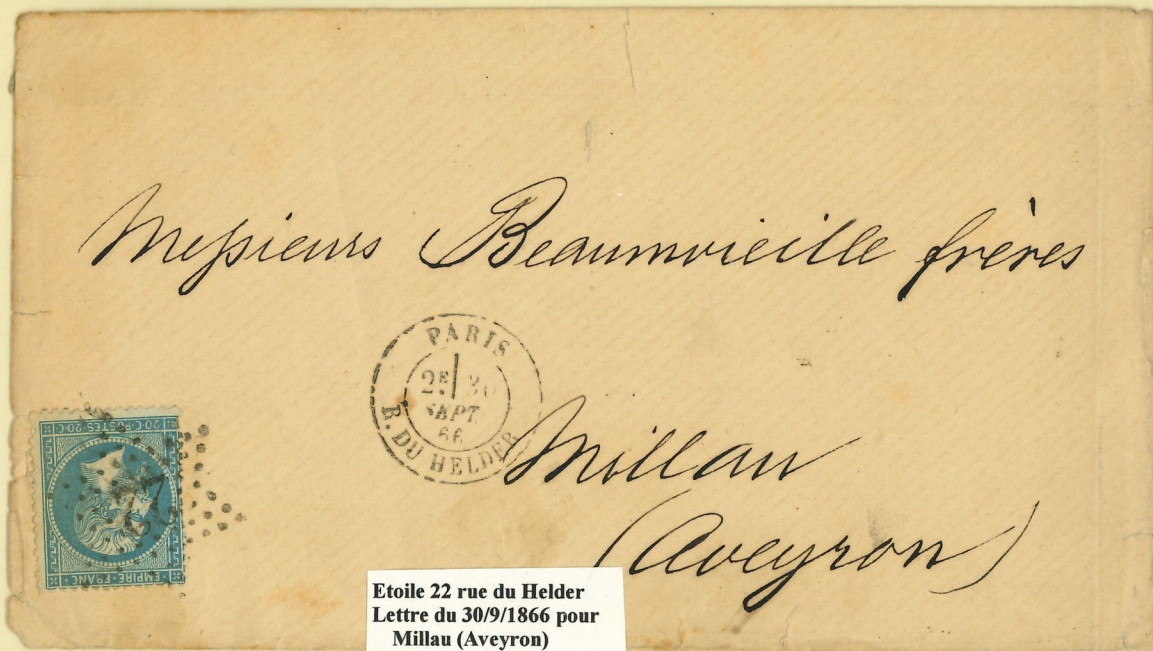 Messieurs Beaumvieille frères
PARIS
2E 30
SEPT.
66
R. DU HELDER
Millau
(Aveyron)
20·C·POSTES·20·C
EMPIRE FRANC
22
Etoile 22 rue du Helder
Lettre du 30/9/1866 pour
Millau (Aveyron)